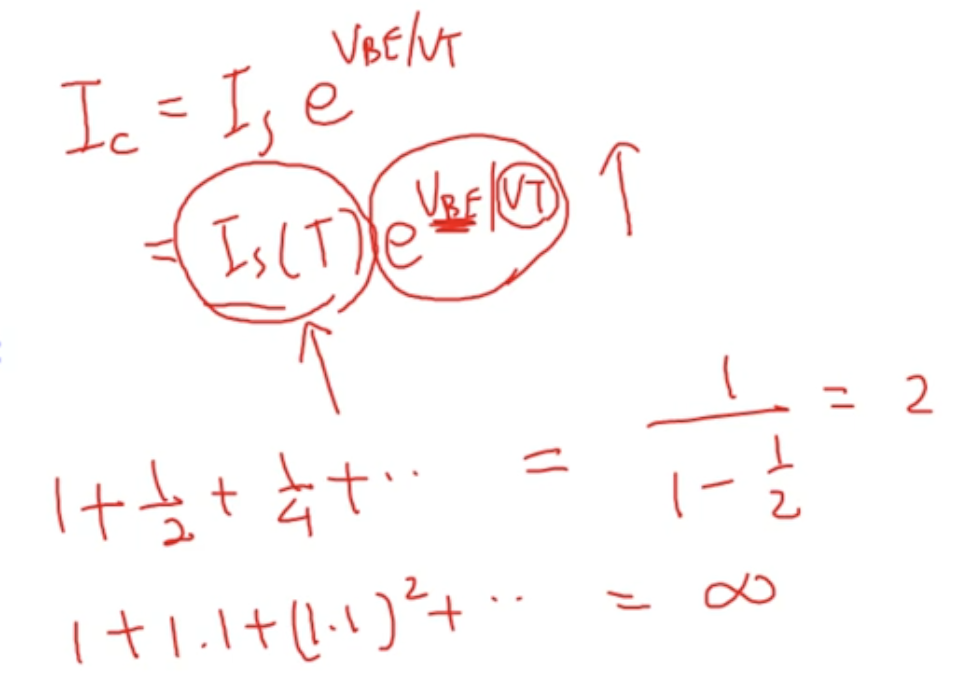 I_c = I_s e^{V_BE/VT}
= I_s(T) e^{V_BE/VT} ↑
↑
1 + 1/2 + 1/4 + ·· = 1/(1 - 1/2) = 2
1 + 1.1 + (1.1)² + ·· = ∞